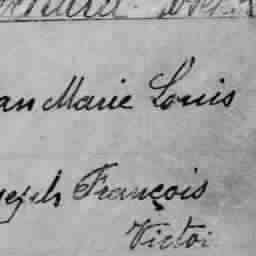 an Marie Louis
seph François
Victoi